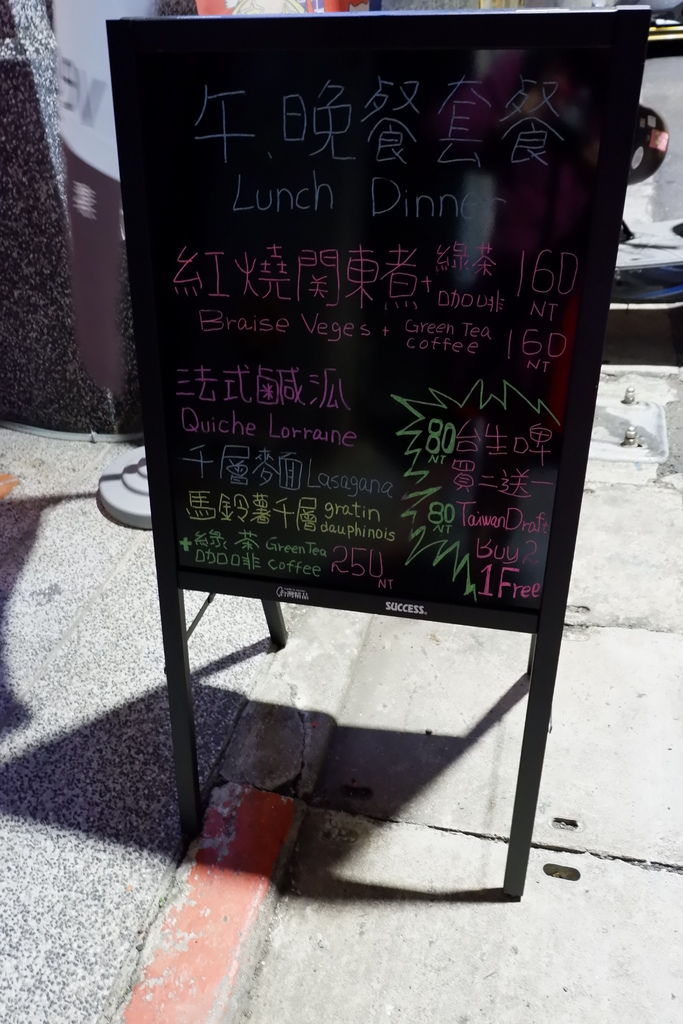 午、晚餐套餐
Lunch Dinner
紅燒関東煮+綠茶 咖啡 160 NT
Braise Veges + Green Tea coffee 160 NT
法式鹹派
Quiche Lorraine
千層麥面 Lasagana
馬鈴薯千層 gratin dauphinois
+綠茶 咖啡 Green Tea coffee 250 NT
80 NT 台生啤
買二送一
80 NT Taiwan Draft
Buy 2
1 Free
SUCCESS.